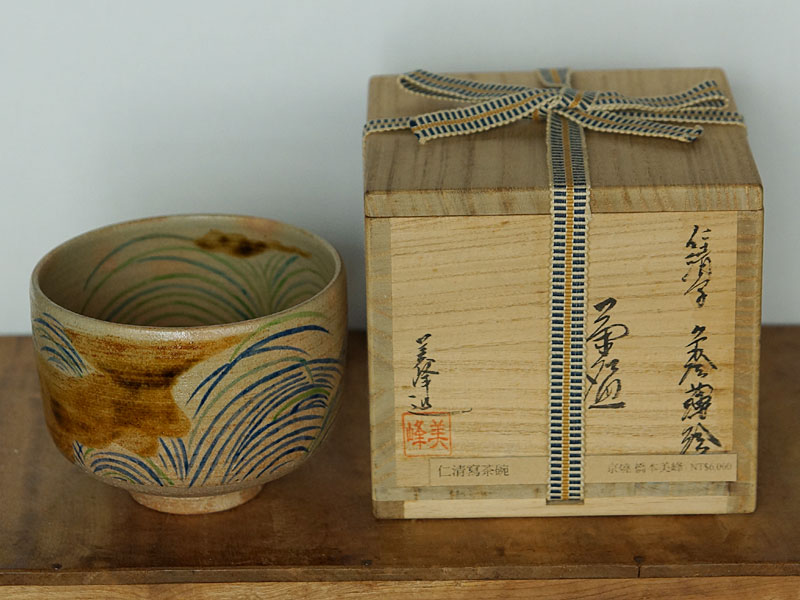 仁清写 薄絵
茶碗
美峰造
美峰
仁清寫茶碗
京燒 橋本美峰 NT$6,000